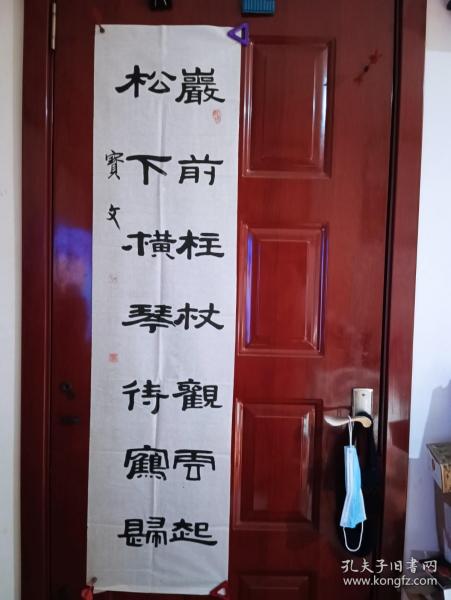 巖前柱杖觀雲起
松下橫琴待鶴歸
寶文
孔夫子旧书网
www.kongfz.com